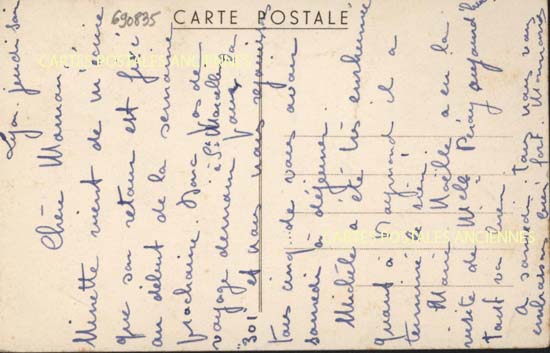 690835
CARTE POSTALE
CARTES POSTALES ANCIENNES
CARTES POSTALES ANCIENNES
Lyon jeudi soir
Chère Maman
Minette vient de m'écrire
que son retour est fixé
au début de la semaine
prochaine. Donc pas de
voyage demain pour
à St Marcellin
"301" et nous nous réjouissons
tous cinq de vous avoir
samedi à déjeuner
Michèle a été très enrhumée
quant à Raymond il a
terminé
Marie Noëlle a eu la
visite de Melle Péray aujourd'hui
tout va bien
A samedi tous nous vous
embrassons bien fort